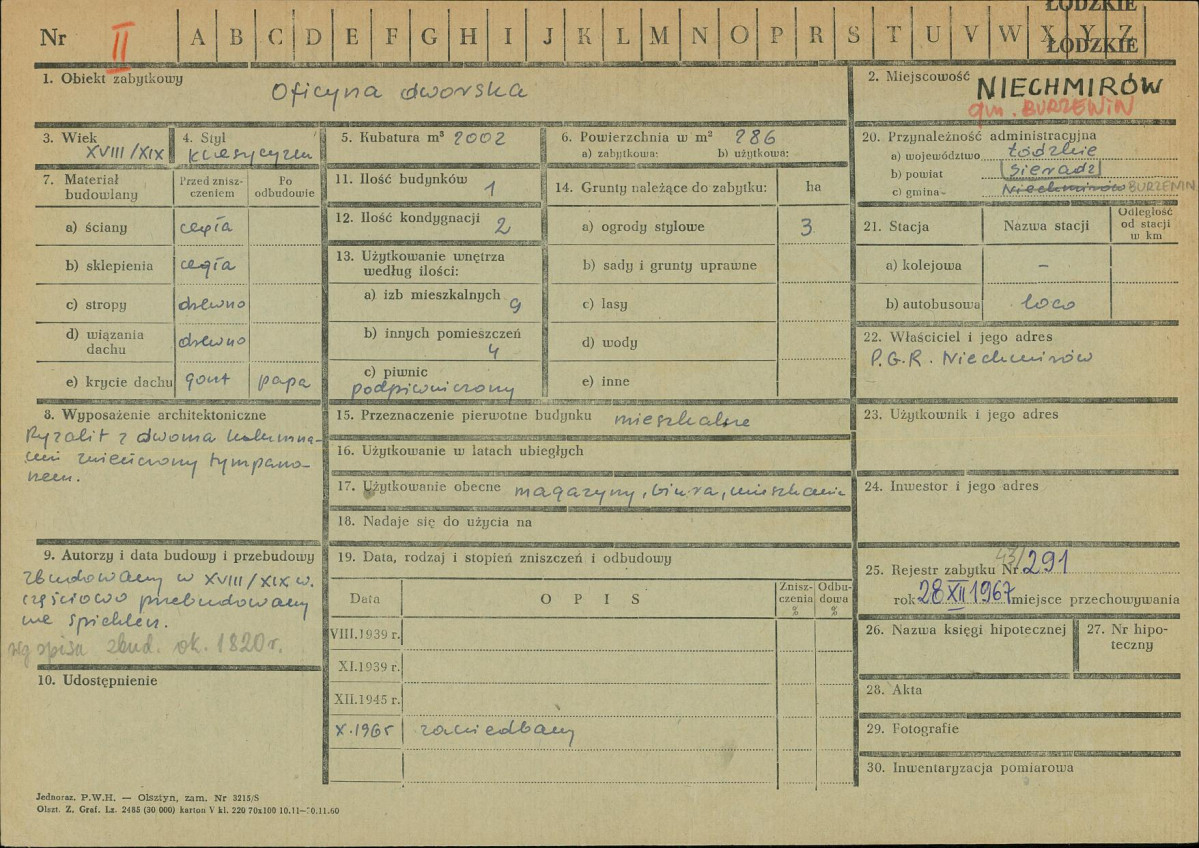 ŁÓDZKIE
Nr II A B C D E F G H I J K L M N O P R S T U V W X Y Z
ŁÓDZKIE
1. Obiekt zabytkowy
Oficyna dworska
2. Miejscowość NIECHMIRÓW
gm. BURZENIN
3. Wiek
XVIII/XIX
4. Styl
klasycyzm
5. Kubatura m³ 2002
6. Powierzchnia w m² 286
a) zabytkowa: b) użytkowa:
7. Materiał budowlany
Przed znisz-
czeniem
Po
odbudowie
a) ściany cegła
b) sklepienia cegła
c) stropy drewno
d) wiązania
dachu drewno
e) krycie dachu gont papa
8. Wyposażenie architektoniczne
Ryzalit z dwoma kolumna-
mi zwieńczony tympano-
nem.
9. Autorzy i data budowy i przebudowy
zbudowany w XVIII/XIX w.
częściowo przebudowany
na spichlerz.
wg spisu zbud. ok. 1820 r.
10. Udostępnienie
11. Ilość budynków 1
12. Ilość kondygnacji 2
13. Użytkowanie wnętrza
według ilości:
a) izb mieszkalnych 9
b) innych pomieszczeń
4
c) piwnic
podpiwniczony
14. Grunty należące do zabytku: ha
a) ogrody stylowe 3
b) sady i grunty uprawne
c) lasy
d) wody
e) inne
15. Przeznaczenie pierwotne budynku mieszkalne
16. Użytkowanie w latach ubiegłych
17. Użytkowanie obecne magazyny, biura, mieszkanie
18. Nadaje się do użycia na
19. Data, rodzaj i stopień zniszczeń i odbudowy
Data O P I S
Znisz-
czenia
%
Odbu-
dowa
%
VIII.1939 r.
XI.1939 r.
XII.1945 r.
X.1965 zaniedbany
20. Przynależność administracyjna
a) województwo Łódzkie
b) powiat Sieradz
c) gmina Niechmirów BURZENIN
21. Stacja Nazwa stacji
Odległość
od stacji
w km
a) kolejowa –
b) autobusowa loco
22. Właściciel i jego adres
P.G.R. Niechmirów
23. Użytkownik i jego adres
24. Inwestor i jego adres
43/
25. Rejestr zabytku Nr 291
rok 28 XII 1967 miejsce przechowywania
26. Nazwa księgi hipotecznej
27. Nr hipo-
teczny
28. Akta
29. Fotografie
30. Inwentaryzacja pomiarowa
Jednoraz. P.W.H. — Olsztyn, zam. Nr 3215/S
Olszt. Z. Graf. Lz. 2485 (30 000) karton V kl. 220 70x100 10.11—30.11.60